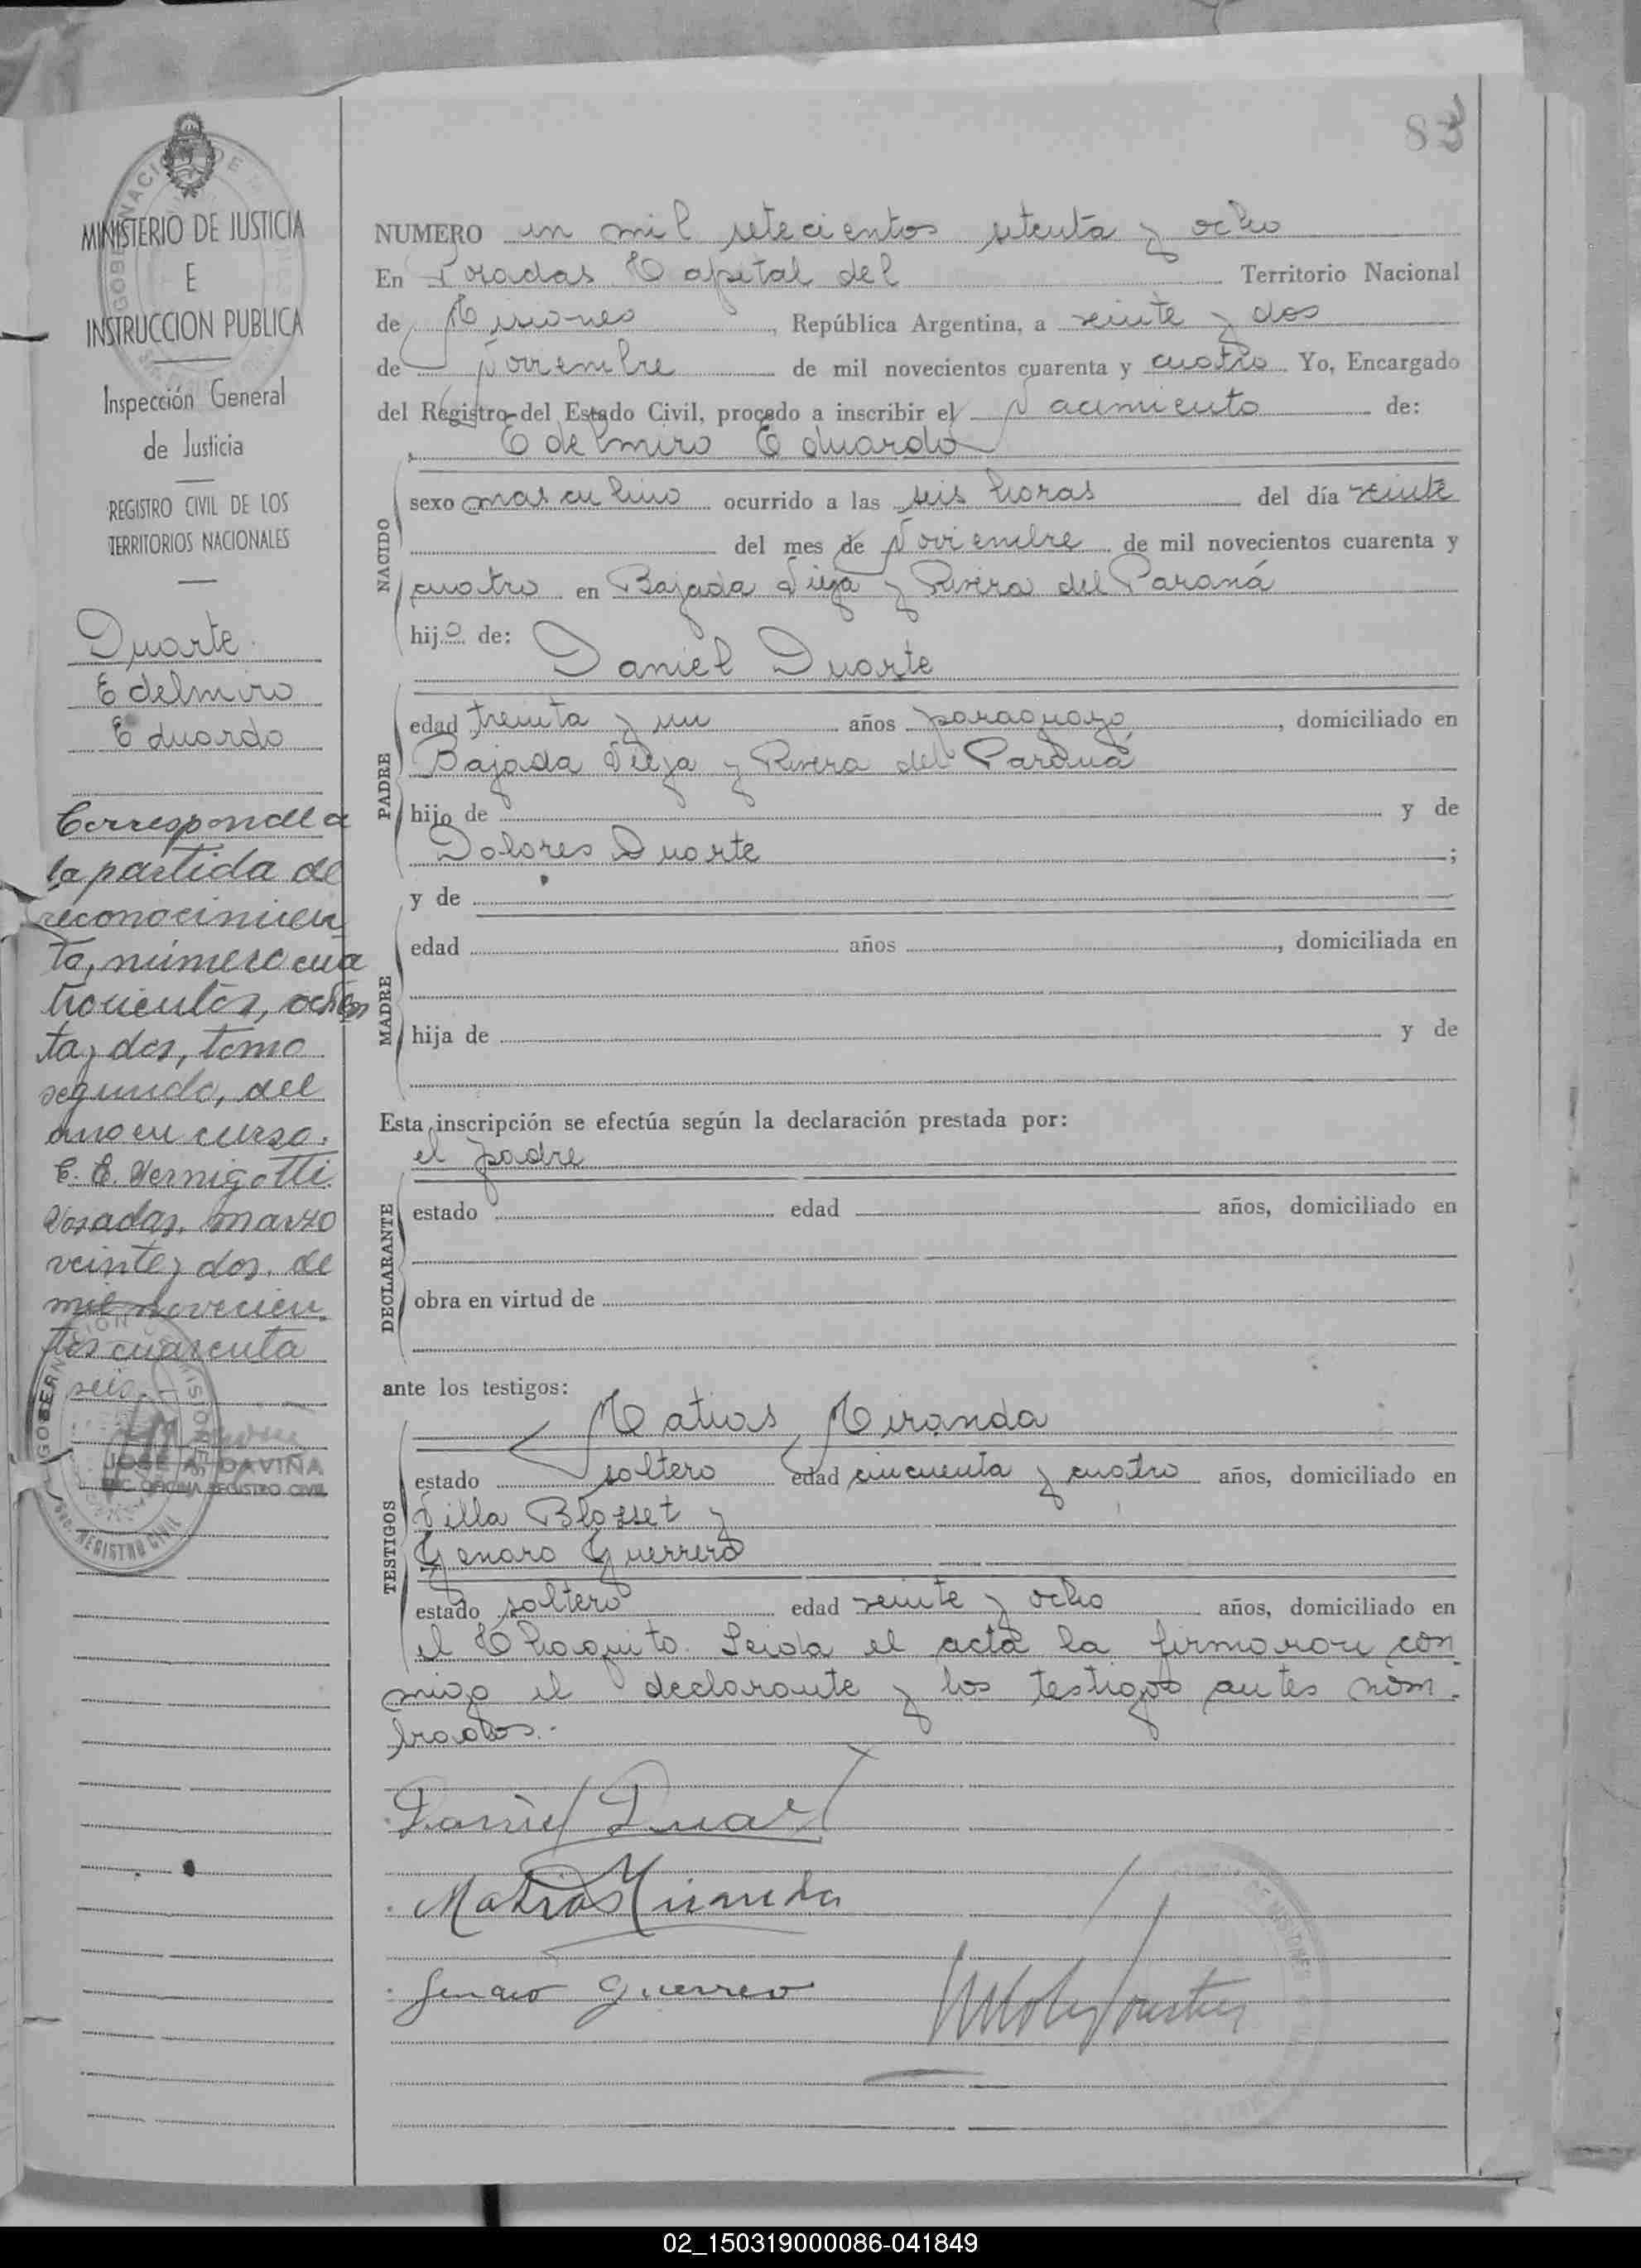 83
MINISTERIO DE JUSTICIA
E
INSTRUCCION PUBLICA
Inspección General
de Justicia
REGISTRO CIVIL DE LOS
TERRITORIOS NACIONALES
Duarte
Edelmiro
Eduardo
Corresponde a
la partida de
reconocimien
to, número cua
trocientos, ochen
ta y dos, tomo
segundo, del
año en curso.
C. E. Vernigotti
Posadas, marzo
veinte y dos, de
mil novecien
tos cuarenta
seis.-
JOSE A. DAVIÑA
ENC. OFICINA REGISTRO CIVIL
NUMERO un mil setecientos setenta y ocho
En Posadas Capital del Territorio Nacional
de Misiones, República Argentina, a veinte y dos
de Noviembre de mil novecientos cuarenta y cuatro Yo, Encargado
del Registro del Estado Civil, procedo a inscribir el Nacimiento de:
Edelmiro Eduardo
NACIDO
sexo masculino ocurrido a las seis horas del día veinte
del mes de Noviembre de mil novecientos cuarenta y
cuatro en Bajada Vieja y Rivera del Paraná
hijo de:
Daniel Duarte
PADRE
edad treinta y un años paraguayo, domiciliado en
Bajada Vieja y Rivera del Paraná
hijo de y de
Dolores Duarte ;
MADRE
y de
edad años , domiciliada en
hija de y de
Esta inscripción se efectúa según la declaración prestada por:
el padre
DECLARANTE
estado edad años, domiciliado en
obra en virtud de
ante los testigos:
Matias Miranda
TESTIGOS
estado soltero edad cincuenta y cuatro años, domiciliado en
Villa Blosset y
Genaro Guerrero
estado soltero edad veinte y ocho años, domiciliado en
el Chaquito. Leida el acta la firmaron con
migo el declarante y los testigos antes nom-
brados.-
Daniel Duart
Matias Miranda
Genaro Guerrero
02_150319000086-041849